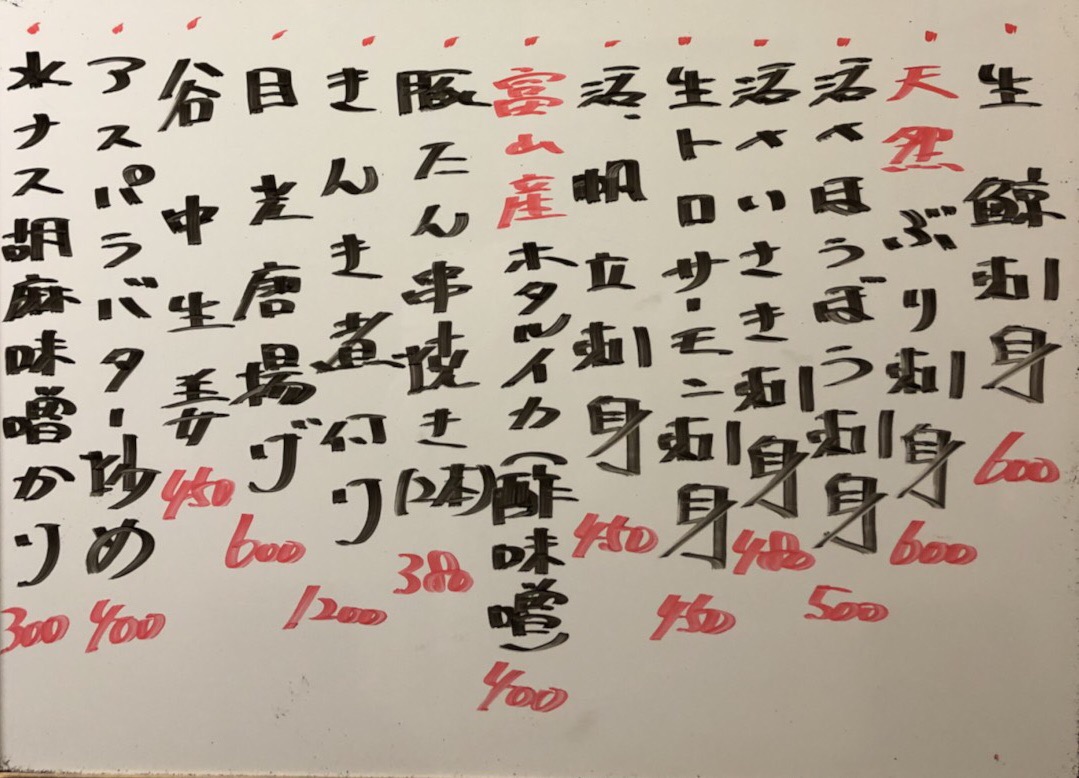 生鯨刺身 600
天然ぶり刺身 600
活〆ほうぼう刺身 500
活〆いさき刺身 480
生トロサーモン刺身 450
活帆立刺身 450
富山産ホタルイカ(酢味噌) 400
豚たん串焼き(2本) 380
きんき煮付け 1200
目光唐揚げ 600
谷中生姜 450
アスパラバター炒め 400
水ナス胡麻味噌かけ 300